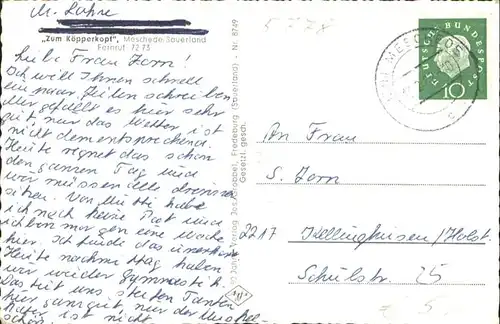 M. Lahre
„Zum Köpperkopf", Meschede/Sauerland
Fernruf: 72 73
Liebe Frau Zorn!
Ich will Ihnen schnell
ein paar Zeilen schreiben.
Mir gefällt es hier sehr
gut, nur das Wetter ist
nicht dementsprechend.
Heute regnet das schon
den ganzen Tag und
wir müssen alle drinnen
sitzen. Von Mutti habe
ich noch keine Post und
ich bin morgen eine Woche
hier. Ich finde das
Heute nachmittag haben
wir wieder Gymnastik.
Das tut uns steifen Tanten
hier ganz gut, nur der
ist nicht
schön.
Jos. Grobbel, Fredeburg (Sauerland) - Nr. 8749
Gesetzl. gesch.
MESCHEDE
DEUTSCHE BUNDESPOST
10
An Frau
S. Zorn
2217 Kellinghusen/Holst.
Schulstr. 25